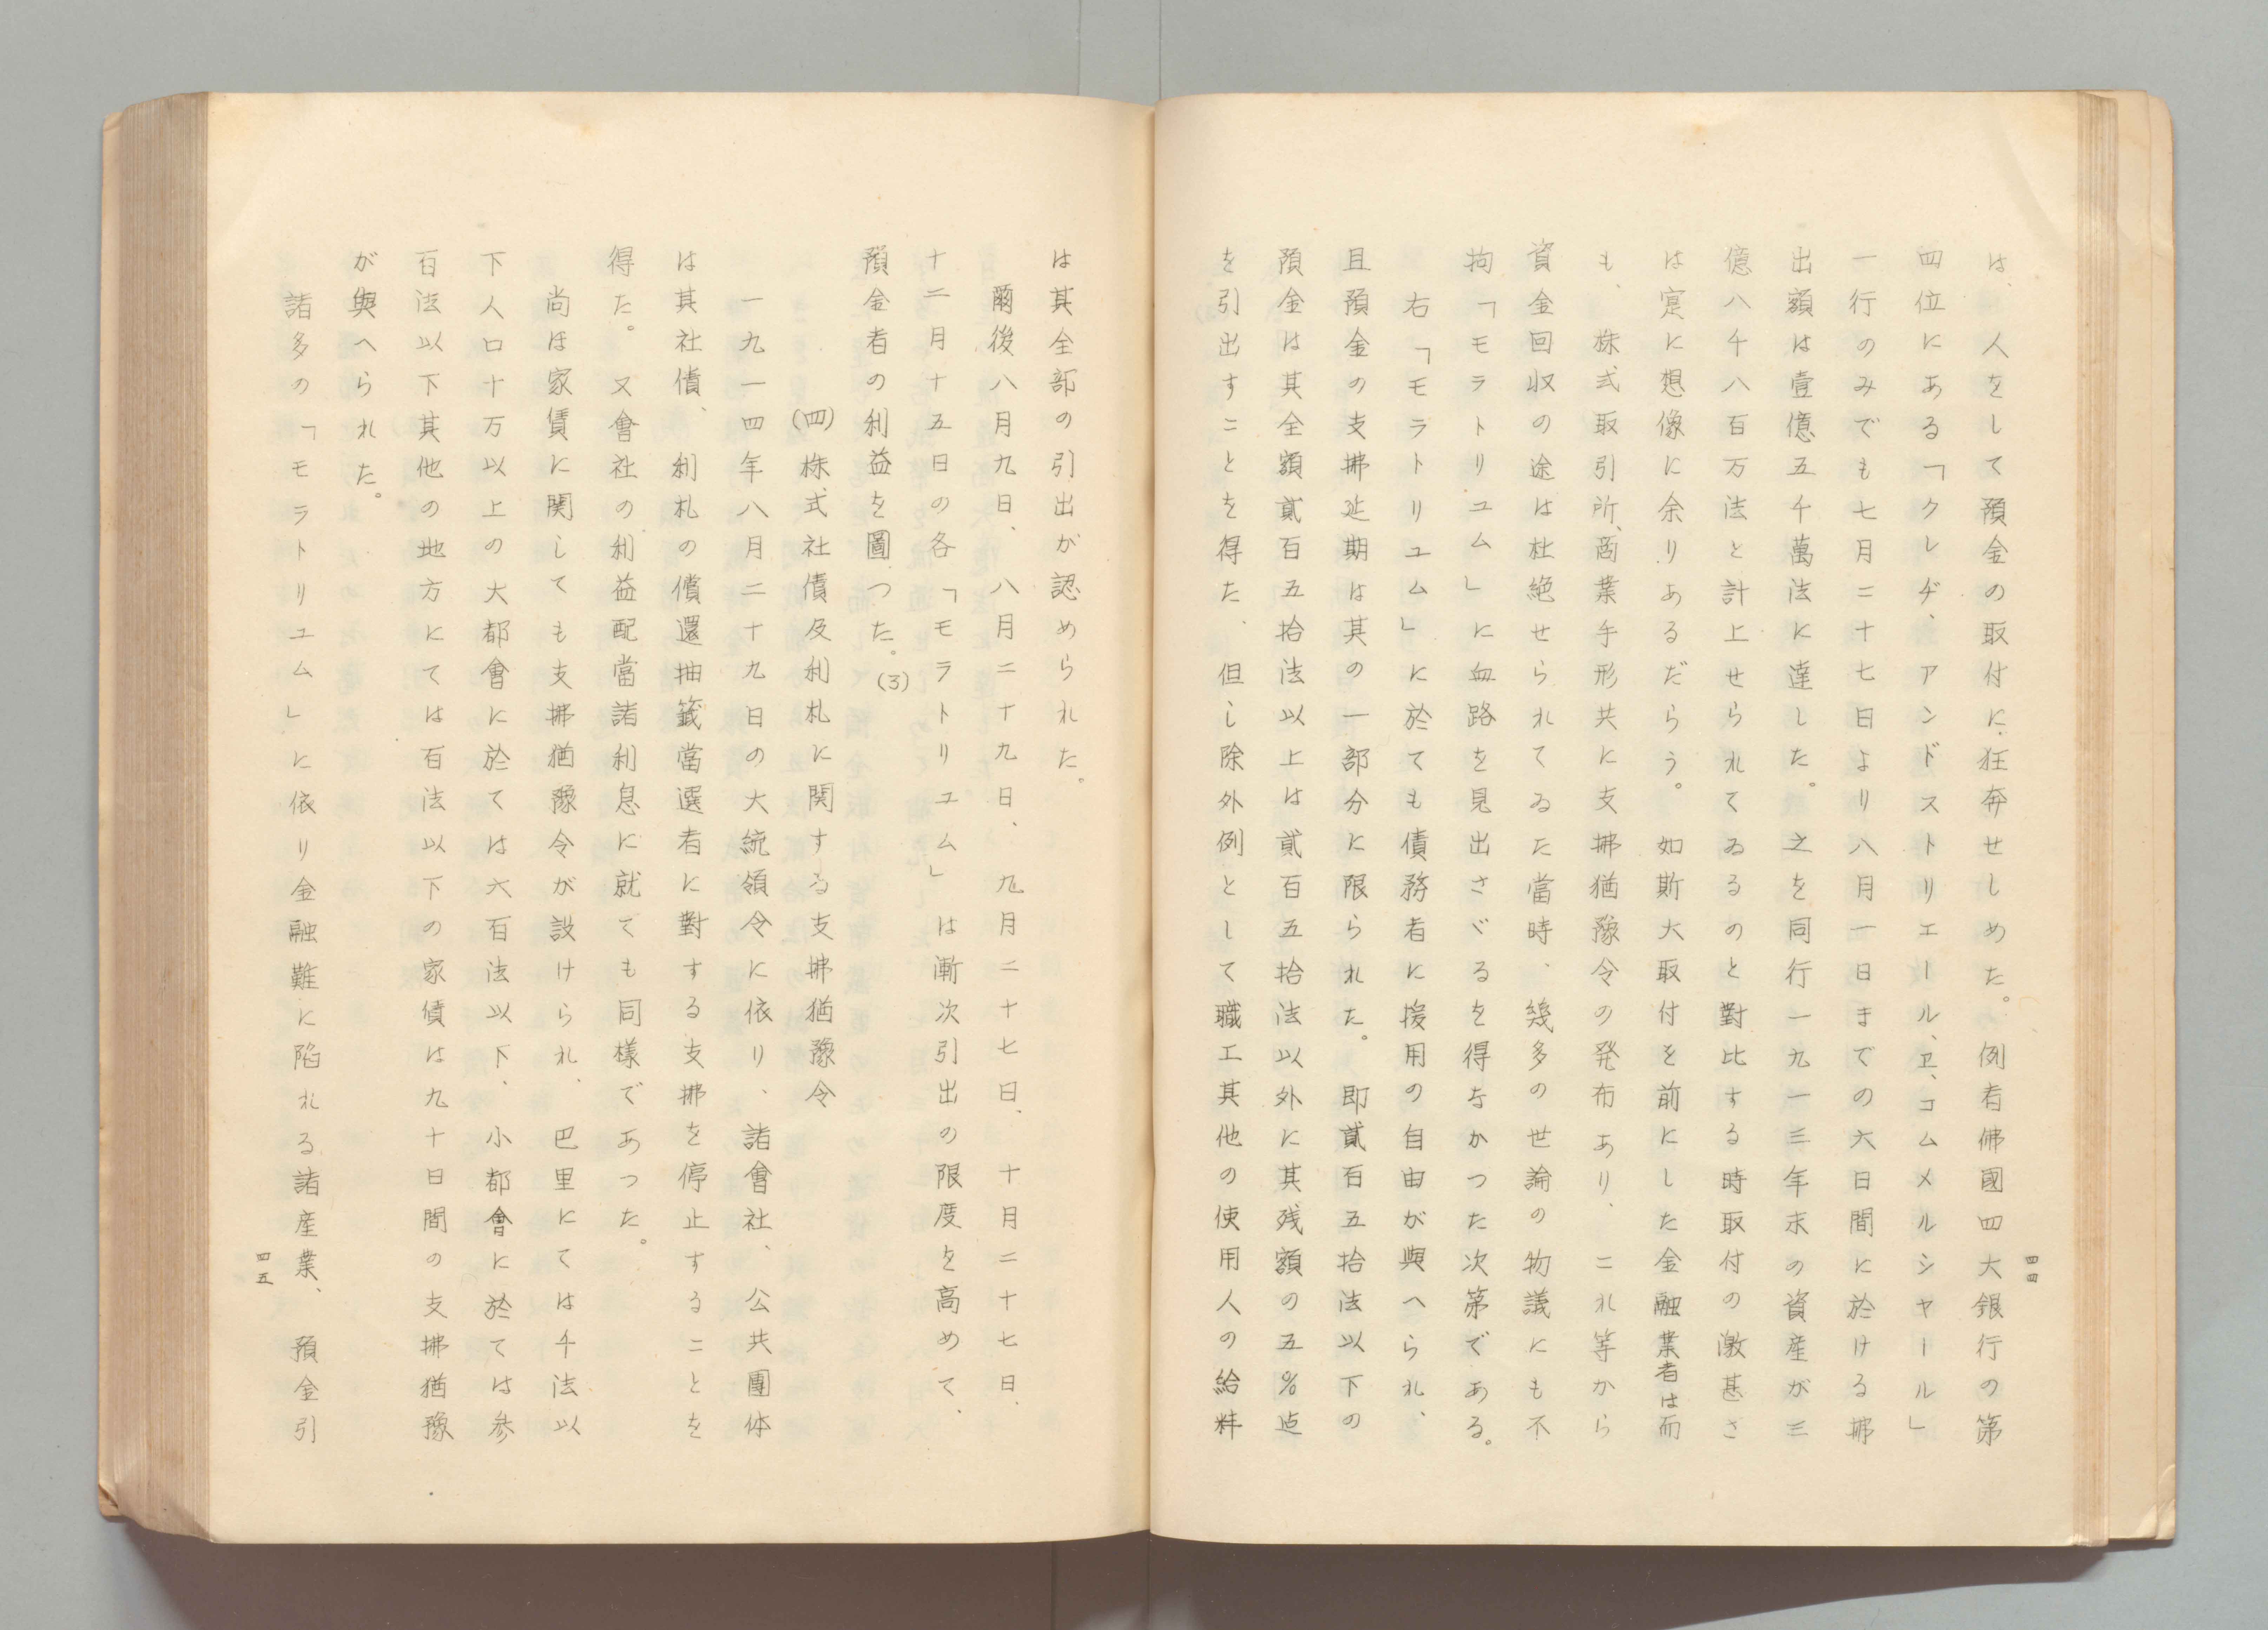 四四
は、人をして預金の取付に狂奔せしめた。例者佛國四大銀行の第
四位にある「クレヂ、アンドストリエール、ヱ、コムメルシヤール」
一行のみでも七月二十七日より八月一日までの六日間に於ける拂
出額は壹億五千萬法に達した。之を同行一九一三年末の資産が三
億八千八百万法と計上せられてゐるのと對比する時取付の激甚さ
は寔に想像に余りあるだらう。如斯大取付を前にした金融業者は而
も、株式取引所、商業手形共に支拂猶豫令の発布あり、これ等から
資金回収の途は杜絶せられてゐた當時、幾多の世論の物議にも不
拘「モラトリユム」に血路を見出さゞるを得なかつた次第である。
右「モラトリユム」に於ても債務者に援用の自由が與へられ、
且預金の支拂延期は其の一部分に限られた。即貳百五拾法以下の
預金は其全額貳百五拾法以上は貳百五拾法以外に其残額の五％迠
を引出すことを得た、但し除外例として職工其他の使用人の給料
は其全部の引出が認められた。
爾後八月九日、八月二十九日、九月二十七日、十月二十七日、
十二月十五日の各「モラトリユム」は漸次引出の限度を高めて、
預金者の利益を圖つた。(3)
(四)株式社債及利札に関する支拂猶豫令
一九一四年八月二十九日の大統領令に依り、諸會社、公共團体
は其社債、利札の償還抽籤當選者に對する支拂を停止することを
得た。又會社の利益配當諸利息に就ても同様であつた。
尚ほ家賃に関しても支拂猶豫令が設けられ、巴里にては千法以
下人口十万以上の大都會に於ては六百法以下、小都會に於ては参
百法以下其他の地方にては百法以下の家債は九十日間の支拂猶豫
が與へられた。
諸多の「モラトリユム」に依り金融難に陷れる諸産業、預金引
四五